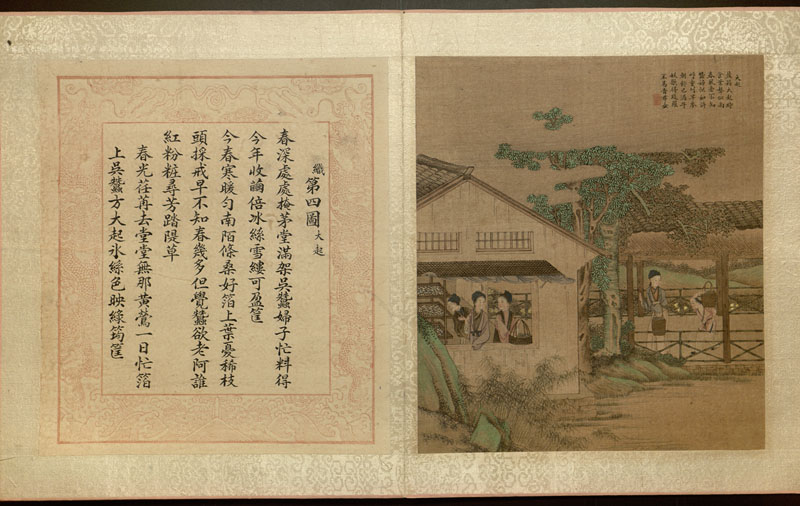 大起
織第四圖大起
春深處處掩茅堂滿架吳蠶婦子忙料得
今年收繭倍冰絲雪縷可盈筐
今春寒暖勻南陌條桑好箔上葉憂稀枝
頭採戒早不知春幾多但覺蠶欲老阿誰
紅粉粧尋芳踏隄草
春光荏苒去堂堂無那黃鶯一日忙箔
上吳蠶方大起氷絲色映綠筠筐